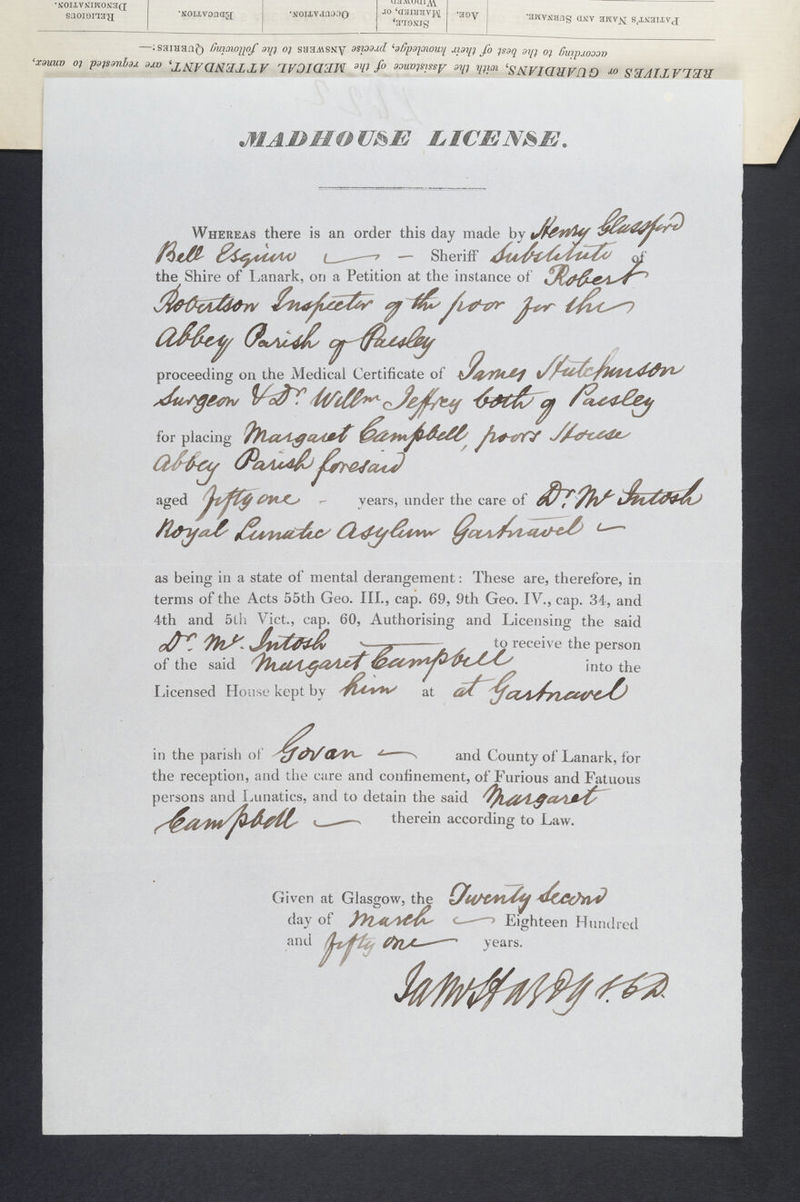 RELATIVES or GUARDIANS, with the Assistance of the MEDICAL ATTENDANT, are requested to annex,
according to the best of their knowledge, precise ANSWERS to the following QUERIES:—
PATIENT'S NAME AND SURNAME.
AGE.
SINGLE,
MARRIED, or
WIDOWED
OCCUPATION.
EDUCATION.
RELIGIOUS
DENOMINATION.
MADHOUSE LICENSE.
WHEREAS there is an order this day made by Henry Glassford
Bell Esquire — Sheriff Substitute of
the Shire of Lanark, on a Petition at the instance of Robert
Robertson Inspector of the poor for the
Abbey Parish of Paisley
proceeding on the Medical Certificate of James Hutchinson
Surgeon & Dr. Willm Jeffrey both of Paisley
for placing Margaret Campbell, poors House
Abbey Parish foresaid
aged fifty one - years, under the care of Dr. Mc Intosh
Royal Lunatic Asylum Gartnavel —
as being in a state of mental derangement: These are, therefore, in
terms of the Acts 55th Geo. III., cap. 69, 9th Geo. IV., cap. 34, and
4th and 5th Vict., cap. 60, Authorising and Licensing the said
Dr. Mc. Intosh — to receive the person
of the said Margaret Campbell into the
Licensed House kept by him at at Gartnavel
in the parish of Govan — and County of Lanark, for
the reception, and the care and confinement, of Furious and Fatuous
persons and Lunatics, and to detain the said Margaret
Campbell — therein according to Law.
Given at Glasgow, the Twenty Second
day of March — Eighteen Hundred
and fifty one — years.